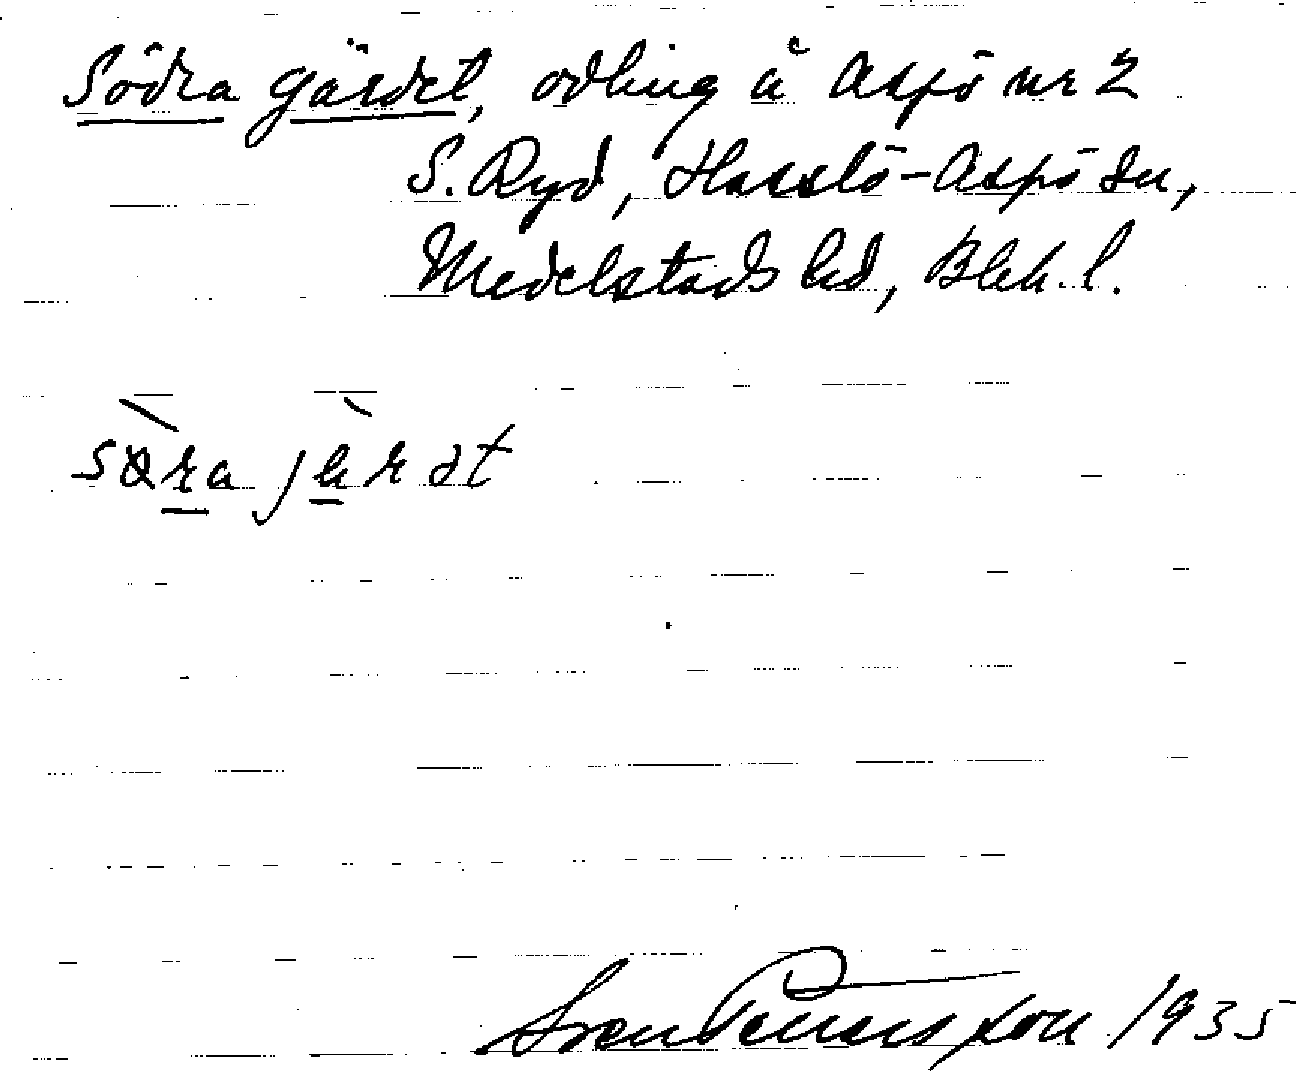 Södra gärdet, odling å Aspö nr 2
S. Ryd, Hasslö-Aspö sn,
Medelstads hd, Blek. l.
Sven Pettersson 1935